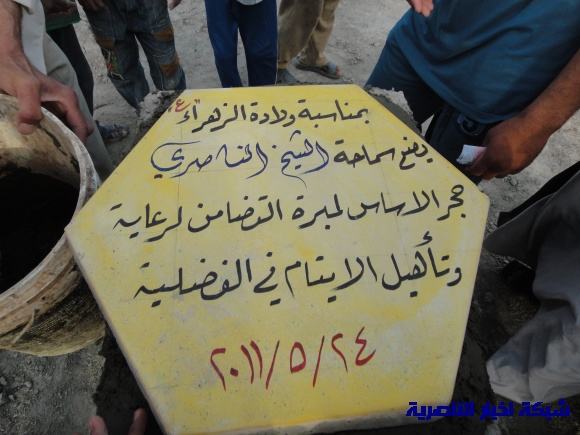 بمناسبة ولادة الزهراء (ع)
يضع سماحة الشيخ الناصري
حجر الاساس لمبرة التضامن لرعاية
وتأهيل الايتام في الفضلية
٢٠١١/٥/٢٤
شبكة اخبار الناصرية